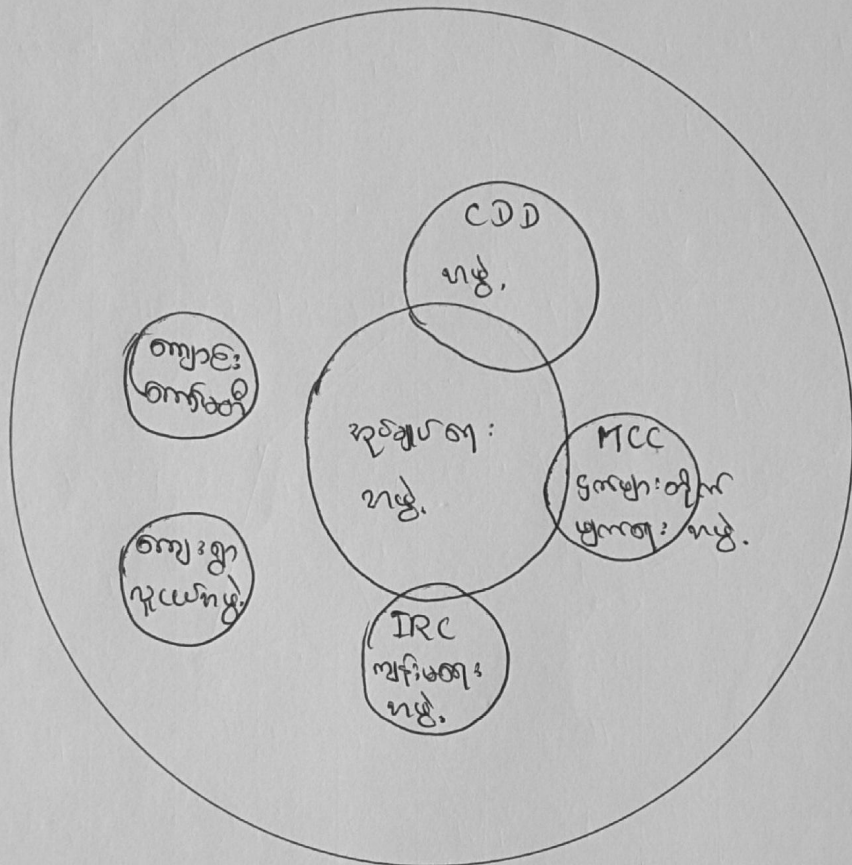 CDD
အဖွဲ့
ကျောင်း
ကော်မတီ
အုပ်ချုပ်ရေး
အဖွဲ့
MCC
ငှက်ဖျားတိုက်
ဖျက်ရေး အဖွဲ့
ကျေးရွာ
လူငယ်အဖွဲ့
IRC
ကျန်းမာရေး
အဖွဲ့